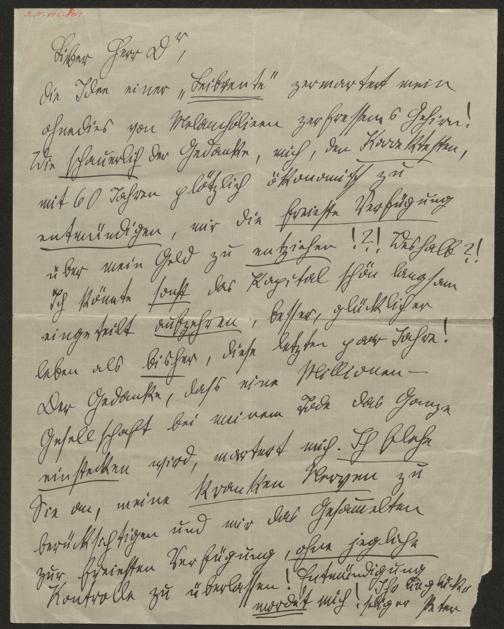 Lieber Herr Dr,
die Idee einer „Leibrente“ zermartert mein
ohnedies von Melancholieen zerfressenes Gehirn!
Wie schauerlich der Gedanke, mich, den Korrektesten,
mit 60 Jahren plötzlich ökonomisch zu
entmündigen, mir die freieste Verfügung
über mein Geld zu entziehen !?! Deshalb?!
Ich könnte sonst das Kapital schön langsam
eingeteilt aufzehren, besser, glücklicher
leben als bisher, diese letzten paar Jahre!
Der Gedanke, dass eine Millionen—
Gesellschaft bei meinem Tode das Ganze
einstecken wird, martert mich. Ich flehe
Sie an, meine kranken Nerven zu
berücksichtigen und mir das Gesammelten
zur freiesten Verfügung, ohne jegliche
Kontrolle zu überlassen! Entmündigung
mordet mich! Ihr unglück-
seliger Peter